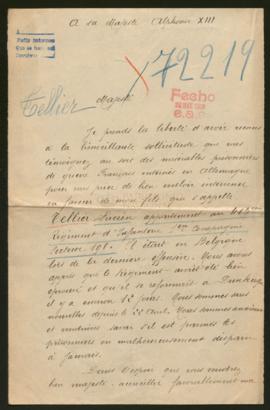 A sa Majesté Alphonse XIII
72219
Fecho
E.S.O.
Tellier
Majesté
Je prends la liberté d'avoir recours
à la bienveillante sollicitude que vous
témoignez au sort des misérables prisonniers
de guerre Français internés en Allemagne
pour vous prier de bien vouloir intervenir
en faveur de mon fils qui s'appelle
Tellier Lucien appartenant au
Régiment d'Infanterie 1ère Compagnie
Secteur 101. Il était en Belgique
lors de la dernière offensive. Nous avons
appris que le Régiment avait été bien
éprouvé et qu'il se reformait à Dunkerque
il y a environ 12 jours. Nous sommes sans
nouvelles depuis le 22 Avril. Nous sommes anxieux
et voudrions savoir s'il est parmi les
prisonniers ou malheureusement disparu
à jamais.
Dans l'espoir que vous voudrez
bien majesté accueillir favorablement ma